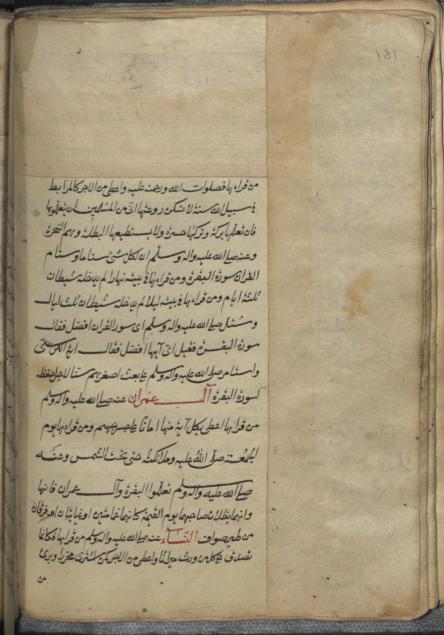 ١٤١
من قراء بها فصلوات الله ورحمته عليه واعطى من الاجر كالمرابط
فى سبيل الله سنة لا تسكن روعتها امر المسلمين ان يتعلموا
فان تعلمها بركة وتركها حسرة ولا يستطيعها البطلة وهم السحرة
وعنه صلى الله عليه واله وسلم ان لكل شئ سناما وسنام
القران سورة البقرة ومن قراءها فى بيته نهارا لم يدخله شيطان
ثلثة ايام ومن قراءها فى بيته ليلا لم يدخله شيطان ثلث ليال
وسئل صلى الله عليه واله وسلم اى سور القران افضل فقال
سورة البقرة فقيل اى آيها افضل فقال آية الكرسى
صلى الله عليه واله وسلم على بعث اصغرهم سنا لاجل حفظه
لسورة البقرة آل عمران عنه صلى الله عليه واله وسلم
من قراءها اعطى بكل آية منها امانا على جسر جهنم ومن قراءها يوم
الجمعة صلى الله عليه وملائكته حتى تجب الشمس وعنه
صلى الله عليه واله وسلم تعلموا البقرة وآل عمران فانها
وانهما يظلان صاحبهما يوم القيمة كانهما غمامتين او غيايتان او فرقان
من طير صواف النساء عنه صلى الله عليه واله وسلم من قراءها فكانما
تصدق على كل من ورث ميراثا واعطى من الاجر كمن اشترى محررا وبرئ
من